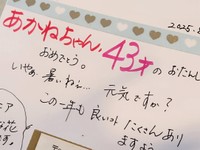 2025.8
あかねちゃん、43才のおたんし
おめでとう。
いやぁ 暑いねぇ… 元気ですか?
この一年も良いコトたくさんあり
ますよう
ニア
な花
す。